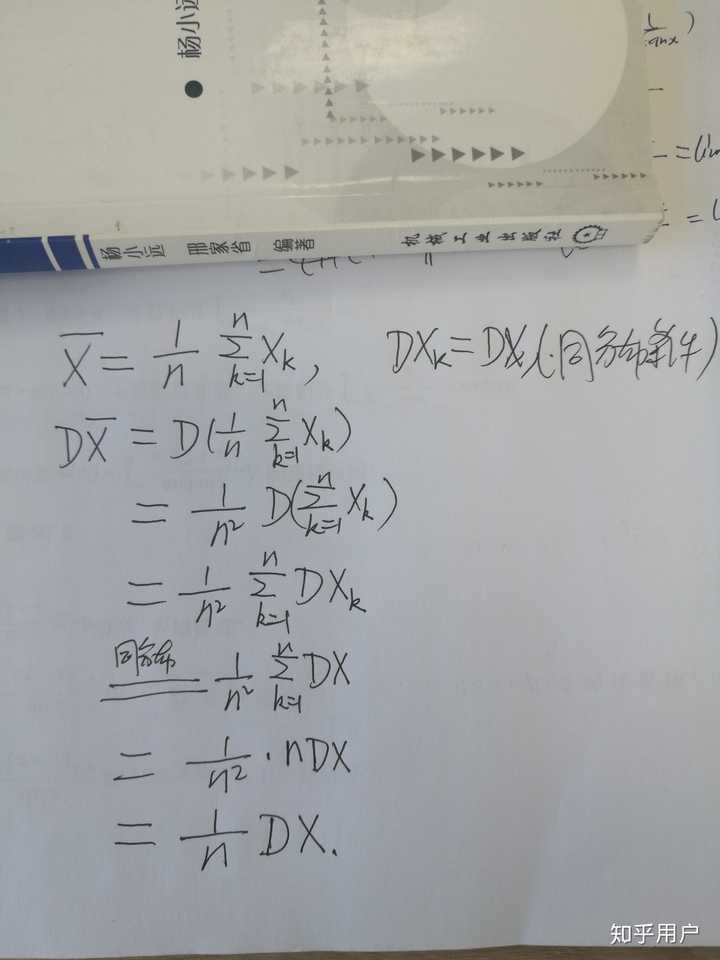 杨小远
杨小远 邢家省 编著 机械工业出版社
X̄ = 1/n ∑_{k=1}^{n} X_k, DX_k = DX (∵同分布条件)
DX̄ = D(1/n ∑_{k=1}^{n} X_k)
= 1/n² D(∑_{k=1}^{n} X_k)
= 1/n² ∑_{k=1}^{n} DX_k
同分布 = 1/n² ∑_{k=1}^{n} DX
= 1/n² · nDX
= 1/n DX.
知乎用户